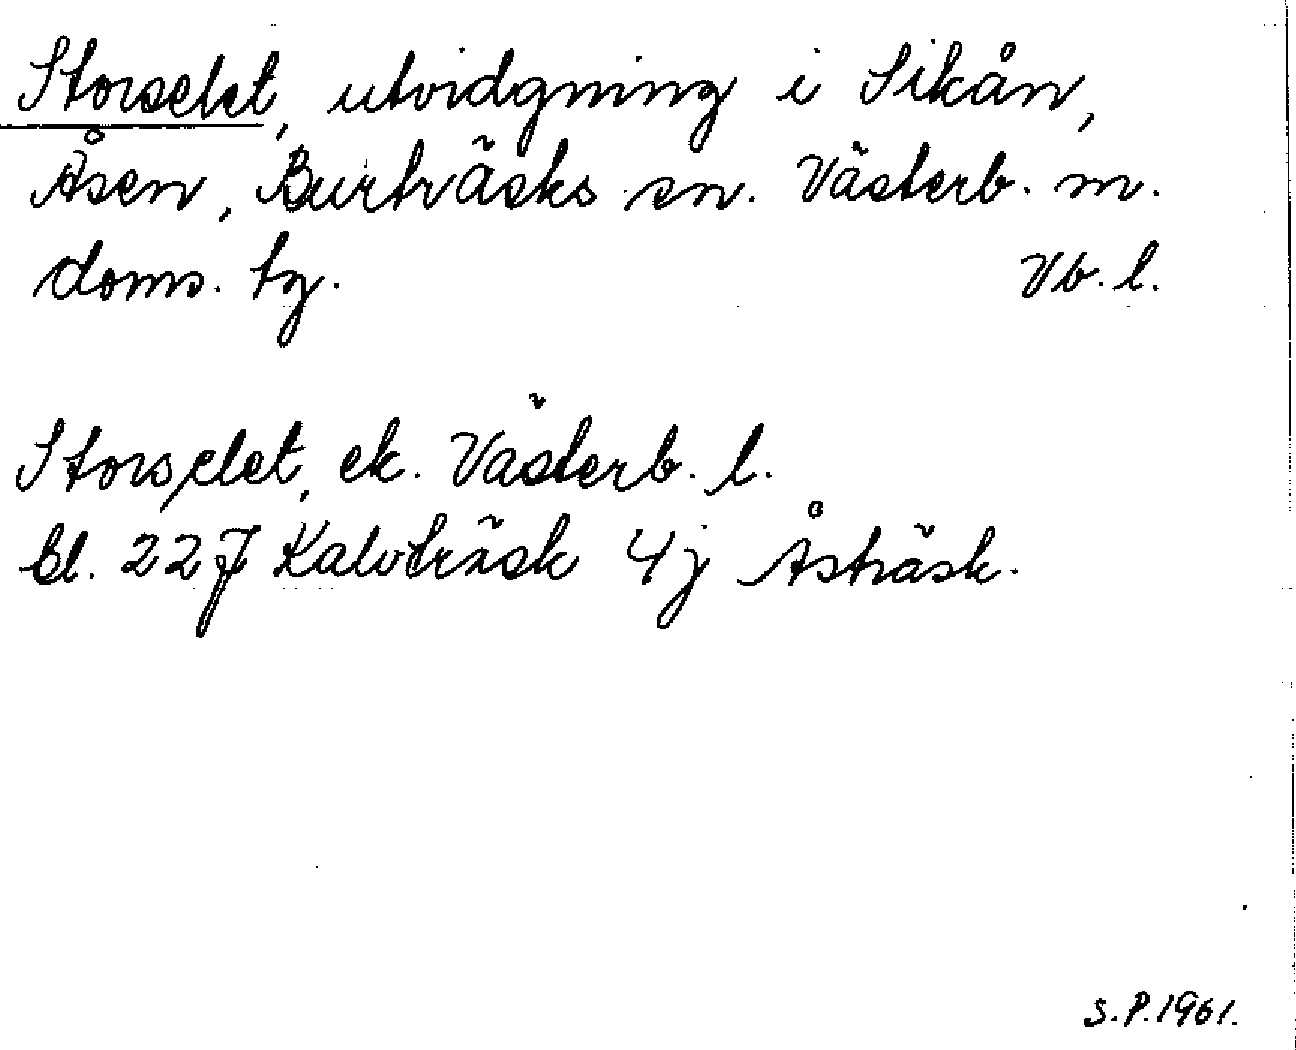 Storselet, utvidgning i Sikån,
Åsen, Burträsks sn. Västerb. m.
doms. tg. Vb. l.
Storselet, ek. Västerb. l.
bl. 22 J Kalvträsk 4j Åsträsk.
S.P. 1961.